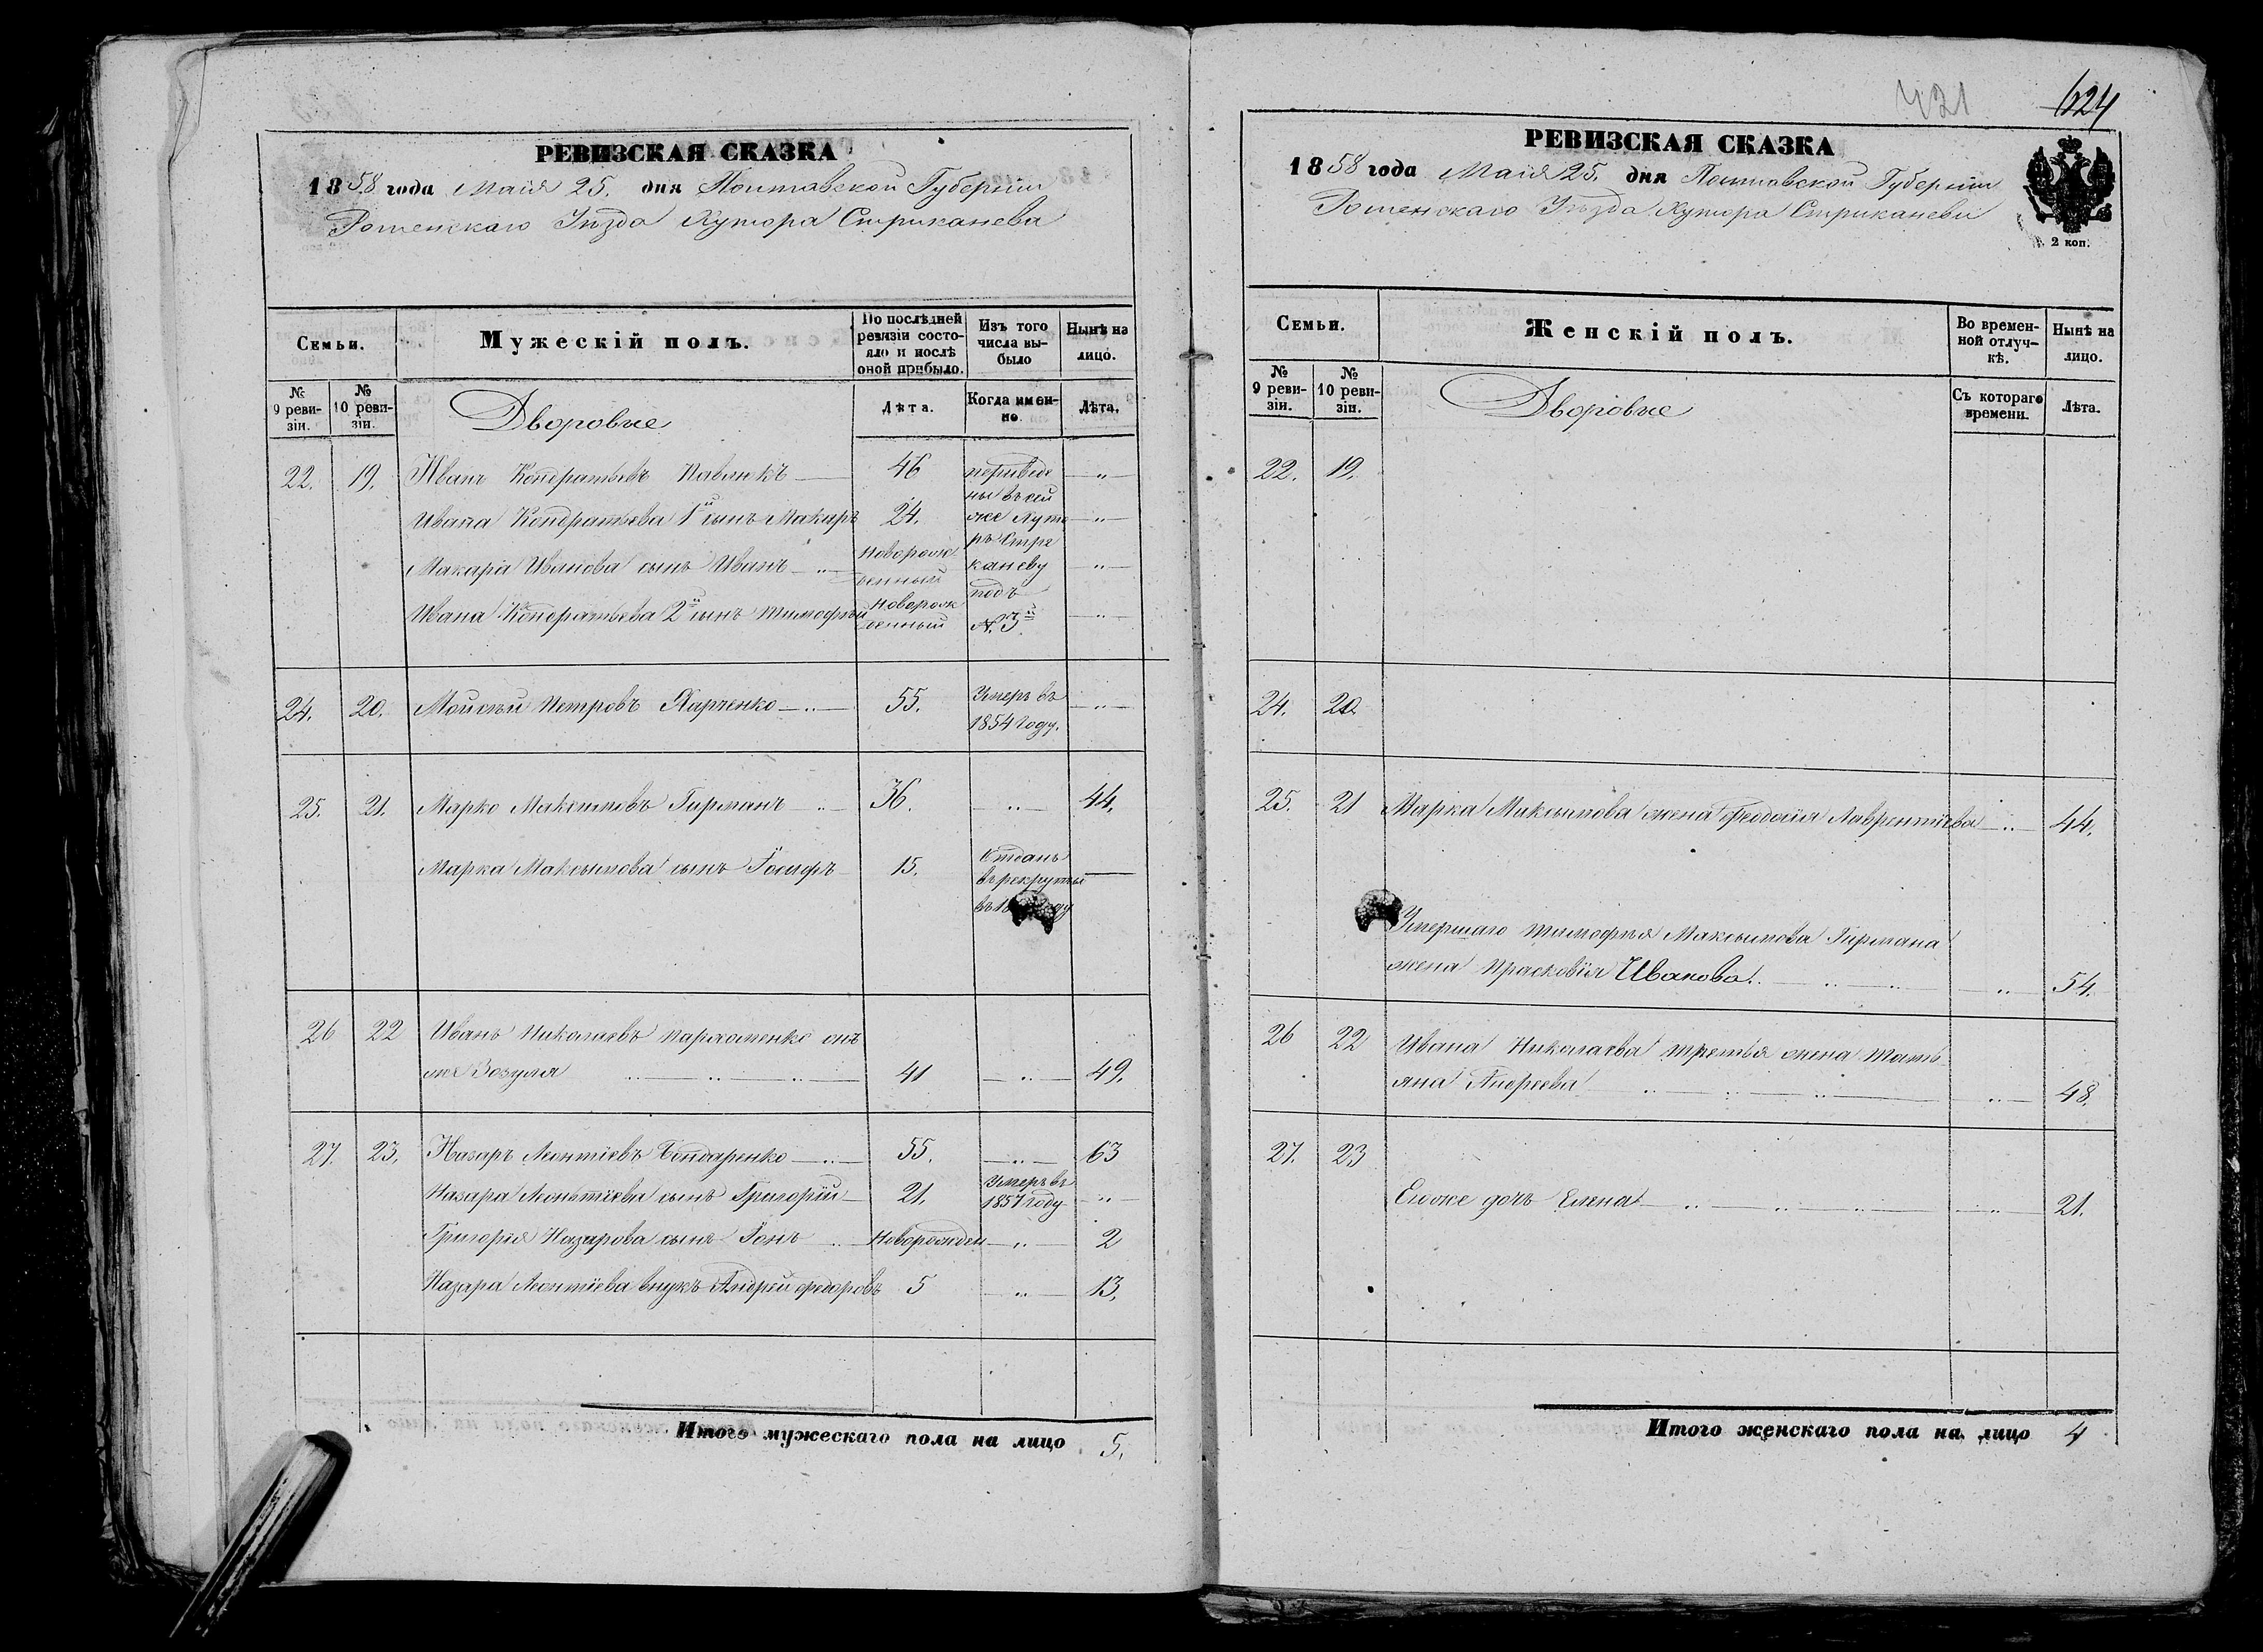 РЕВИЗСКАЯ СКАЗКА
1858 года Маія 25. дня Полтавской Губерніи
Роменскаго Уѣзда Хутора Стриканева
Семьи.
Мужескій полъ.
По послѣдней ревизіи состояло и послѣ оной прибыло.
Изъ того числа выбыло
Нынѣ на лицо.
№ 9 ревизіи.
№ 10 ревизіи.
Дворовые
Лѣта.
Когда именно.
Лѣта.
22. 19. Иванъ Кондратьевъ Павлюкъ 46 переведе „
ны въ сей
Ивана Кондратьева 1й сынъ Макаръ 24. же Хуто „
ръ Стри
Макара Иванова сынъ Иванъ новорож каневу „
денный
подъ
Ивана Кондратьева 2й сынъ Тимофѣй Новорож
денный №. 3й „
24. 20. Мойсей Петровъ Харченко 55. Умеръ въ „
1854 году.
25. 21. Марко Максимовъ Гирманъ 36. „ 44.
Марка Максимова сынъ Іосифъ 15. Отданъ
въ рекруты
26 22 Иванъ Николаевъ Пархоменко онъ
же Зозуля 41 „ 49.
27. 23. Назаръ Леонтіевъ Бондаренко 55. „ 63
Назара Леонтіева сынъ Григорій 21. Умеръ въ „
1857 году
Григорія Назарова сынъ Іонъ Новорожден „ 2
Назара Леонтіева внукъ Андрей Федоровъ 5 „ 13.
Итого мужескаго пола на лицо 5.
421
624
РЕВИЗСКАЯ СКАЗКА
1858 года Маія 25. дня Полтавской Губерніи
Роменскаго Уѣзда Хутора Стриканеви
2 коп.
Семьи.
Женскій полъ.
Во временной отлучкѣ.
Нынѣ на лицо.
№ 9 ревизіи.
№ 10 ревизіи.
Дворовые
Съ котораго времени.
Лѣта.
22. 19.
24. 20.
25. 21 Марка Максимова жена Феодосія Лаврентіева „ 44.
Умершаго Тимофея Максимова Гирмана
жена Прасковія Иванова „ 54.
26 22 Ивана Николаева третья жена Тать
яна Андреева „ 48.
27. 23
Егоже дочь Елена „ 21.
Итого женскаго пола на лицо 4